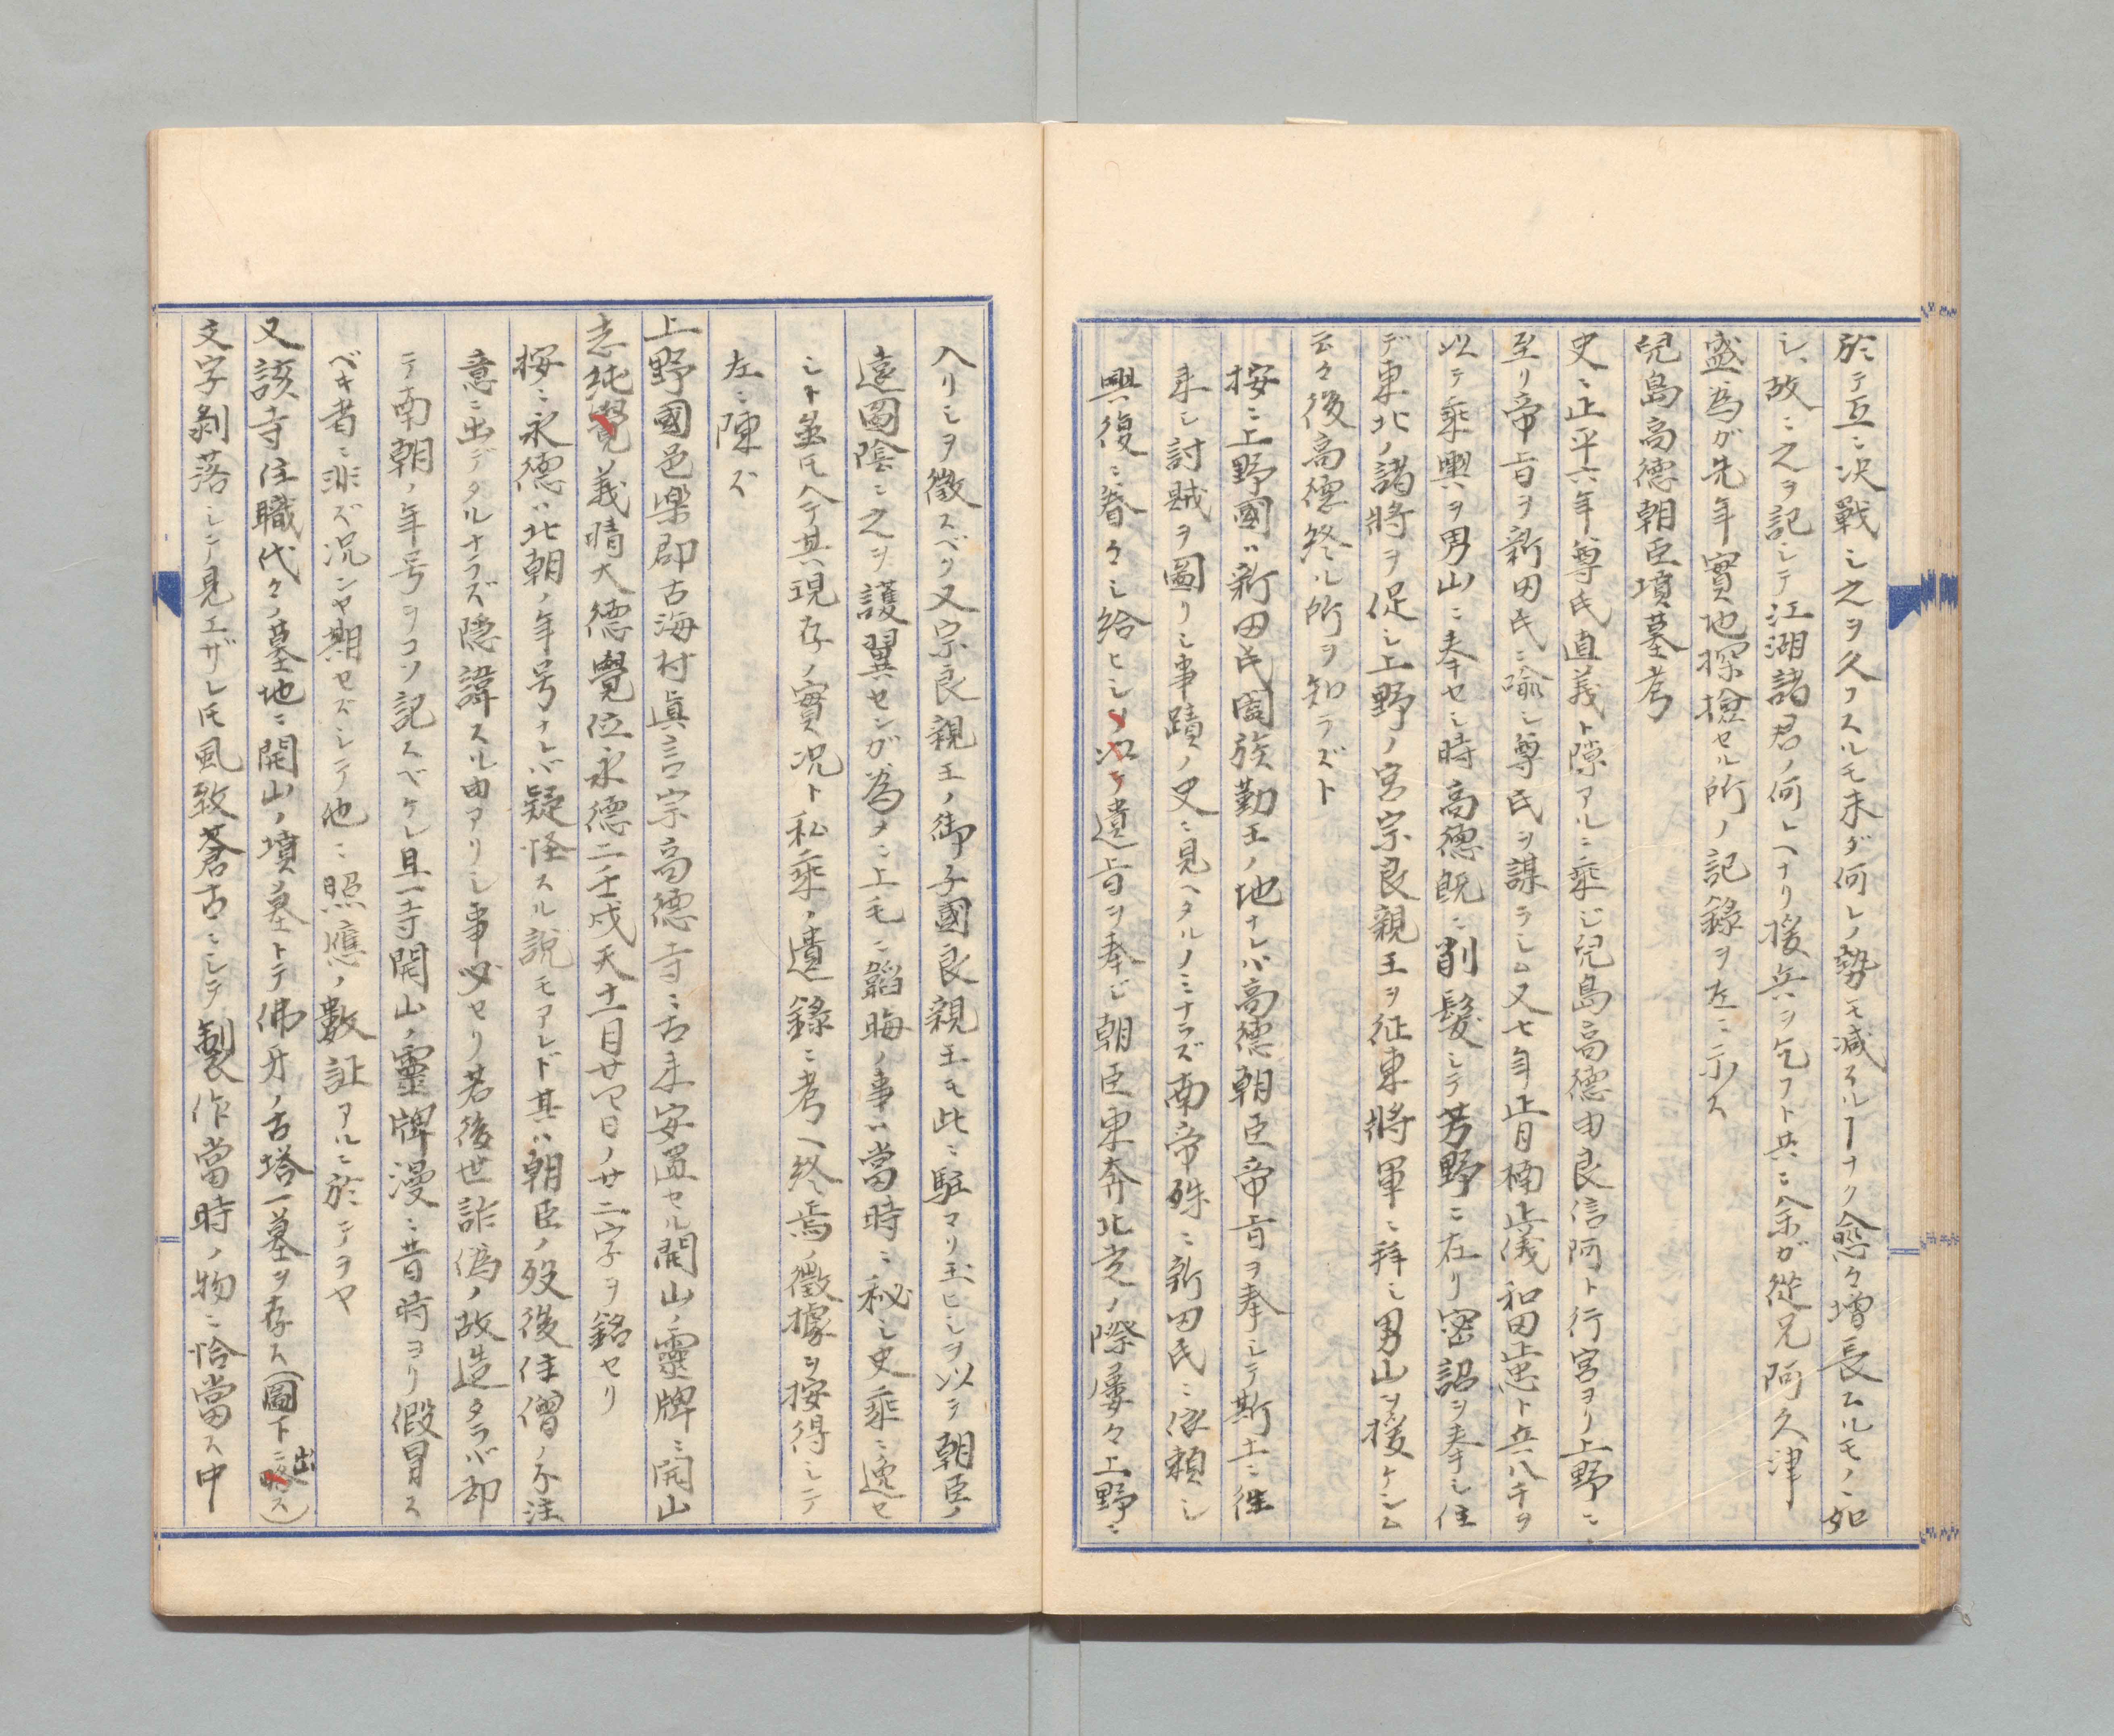 於テ互ニ决戰シ之ヲ久フスルモ未ダ何レノ勢モ减スルヿナク愈々增長ムルモノヽ如
シ、故ニ之ヲ記シテ江湖諸君ノ何レヘナリ援兵ヲ乞フト共ニ余ガ從兄阿久津
盛爲ガ先年實地探撿セル所ノ記錄ヲ左ニ示ス
兒島高德朝臣墳墓考
史ニ正平六年尊氏直義ト隙アルニ乘ジ兒島高德由良信阿ト行宮ヨリ上野ニ
至リ帝旨ヲ新田氏ニ喩シ尊氏ヲ謀ラシム又七年正月楠正儀和田正忠ト兵八千ヲ
以テ乘輿ヲ男山ニ奉セシ時高德旣ニ削髮シテ芳野ニ在リ密詔ヲ奉シ往
デ東北ノ諸將ヲ促シ上野ノ宮宗良親王ヲ征東將軍ニ拜シ男山ヲ援ケシム
云々後高德終ル所ヲ知ラズト
按ニ上野國ハ新田氏闔族勤王ノ地ナレバ高德朝臣帝旨ヲ奉シテ斯土ニ徃
来シ討賊ヲ圖リシ事蹟ノ史ニ見ヘタルノミナラズ南帝殊ニ新田氏ニ依頼シ
興復ニ眷々シ給ヒシヲ以テ遺旨ヲ奉じ朝臣東奔北走ノ際屢々上野ニ
入リシヲ徵スベク又宗良親王ノ御子國良親王モ此ニ駐マリ玉ヒシヲ以テ朝臣ノ
遠圖陰ニ之ヲ護翼センガ爲メニ上毛ニ韜晦ノ事ハ當時ニ秘シ史乘ニ逸セ
シト虽氏今其現存ノ實况ト私乘ノ遺錄ニ考ヘ終焉ノ徵據ヲ按得シテ
左ニ陳ズ
上野國邑樂郡古海村眞言宗高德寺ニ古来安置セル開山ノ靈牌ニ開山
志純覺義晴大德覺位永德二壬戌天十一月廿四日ノ廿二字ヲ銘セリ
按ニ永德ハ北朝ノ年号ナレバ疑怪スル説モアレド其ハ朝臣ノ歿後住僧ノ不注
意ニ出デタルナラズ隱諱スル由アリシ事必セリ若後世詐僞ノ故造タラバ却
テ南朝ノ年号ヲコソ記スベケレ且一寺開山ノ靈牌漫ニ昔時ヨリ假冒ス
ベキ者ニ非ズ况ンヤ期セズシテ他ニ照應ノ數証アルニ於テヲヤ
又該寺住職代々ノ墓地ニ開山ノ墳墓トテ佛牙ノ古塔一墓ヲ存ス(圖下ニ出ス)
文字剝落シテ見エザレ氏風致蒼古ニシテ製作當時ノ物ニ恰當ス中